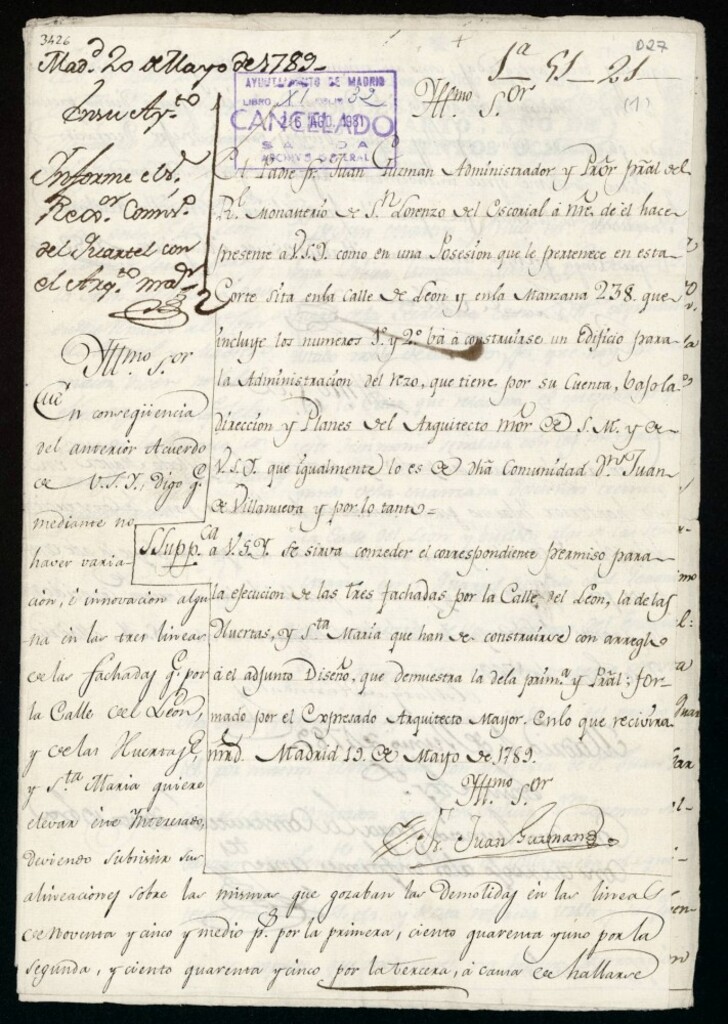 3426
D27
Mad.d 20 de Mayo de 1789
1ª 51 21
(1)
AYUNTAMIENTO DE MADRID
LIBRO XI FOLIO 32
CANCELADO
26 AGO. 1981
SALIDA
ARCHIVO GENERAL
En su Ay.to
Informe el S.r
Rexi.or Comis.o
del Quartel con
el Arq.to m.or
Yll.mo S.or
El Padre fr. Juan Guzman Administrador y P.ror pral del
R.l Monasterio de S.n Lorenzo del Escorial á nre. de él hace
presente á V.S.Y. como en una Posesion que le pertenece en esta
Corte sita en la Calle de Leon y en la Manzana 238. que
incluye los numeros 1.º y 2.º bá á construirse un Edificio para
la Administracion del rezo, que tiene por su Cuenta, bajo la
direccion y Planes del Arquitecto Mor de S.M. y de
V.S.Y. que igualmente lo es de dha Comunidad D.n Juan
de Villanueva y por lo tanto=
SSupp.ca á V.S.Y. se sirva conceder el correspondiente permiso para
la ejecucion de las tres fachadas por la Calle del Leon, la de las
Huertas, y S.ta Maria que han de construirse con arreglo
á el adjunto Diseño, que demuestra la de la prim.a y Pral: for-
mado por el Expresado Arquitecto Mayor. En lo que recivirá
mrd. Madrid 19 de Mayo de 1789.
Yll.mo S.or
Fr. Juan Guzman
Yll.mo S.or
En conseqüencia
del anterior Acuerdo
de V.S.Y., digo q.e
mediante no
haver varia-
cion, é innovacion algu
na en las tres lineas
de las fachadas q.e por
la Calle del Leon,
y de las Huertas,
y S.ta Maria quiere
elevar este Interesado,
deviendo subsistir sus
alineaciones sobre las mismas que gozaban las demolidas en las lineas
de noventa y cinco y medio p.s por la primera, ciento quarenta y uno por la
segunda, y ciento quarenta y cinco por la tercera, á causa de hallarse